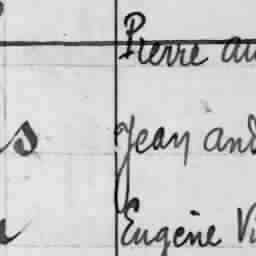 Pierre au
s Jean and
Eugène Vi